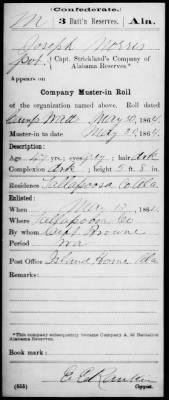 Confederate.
M 3 Batt'n Reserves. Ala.
Joseph Norris
Pvt., Capt. Strickland's Company of
Alabama Reserves.*
Appears on
Company Muster-in Roll
of the organization named above. Roll dated
Camp Watts May 20, 1864.
Muster-in to date May 20, 1864.
Description:
Age 47 yrs; eyes grey; hair dark
Complexion dark; height 5 ft. 8 in.
Residence Tallapoosa Co Ala
Enlisted:
When May 17, 1864.
Where Tallapoosa Co
By whom Capt Browne
Period War
Post Office Island Home Ala
Remarks:
*This company subsequently became Company A, 3d Battalion
Alabama Reserves.
Book mark:
(655) Copyist.